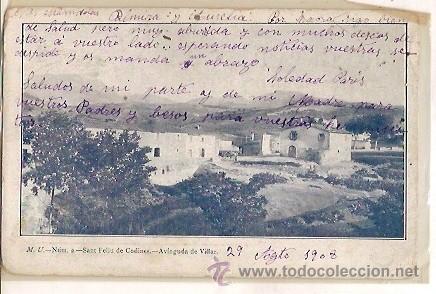 Elmira y Aurelia Por ahora sigo bien
de salud pero muy aburrida y con muchos deseos de
estar á vuestro lado. esperando noticias vuestras se
despide y os manda un abrazo
Soledad Paris
Saludos de mi parte y de mi Madre para
vuestros Padres y besos para vuestras
M. U.—Núm. 2—Sant Feliu de Codines.—Avinguda de Villar.
29 Agto 1908
todocoleccion
© www.todocoleccion.com